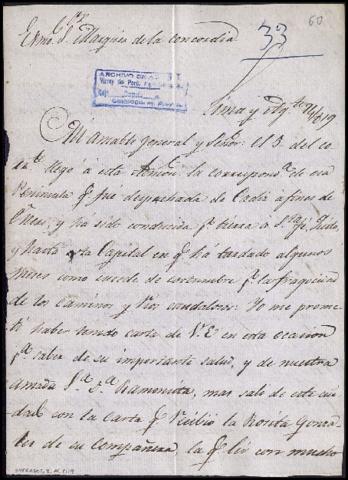 Exmo. Sr. Marques de la Concordia
33
60
ARCHIVO
Lima y Ag.to 4/819
Mi amable General y Señor: el 3. del co
rr.te llegó á esta Admon. la correspond.a de esa
Peninsula q.e fué despachada de Cadiz á fines de
Enero, y ha sido conducida p.r tierra á S.ta fé, Quito,
y hasta esta Capital en q.e há tardado algunos
meses como sucede de costumbre p.r la fragocidad
de los caminos y Rios caudalosos: Yo me prome
ti haber tenido carta de V.E en esta ocacion
p.a saber de su importante salud, y de nuestra
amada S.ra D.a Ramonita, mas salí de este cui
dad con la carta q.e recibio la Rosita Gonza
les de su compañera, la q.e leí con mucho